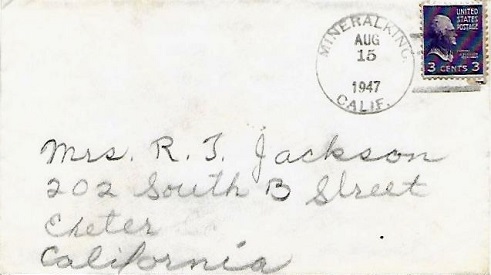 MINERALKING.
AUG
15
1947
CALIF.
UNITED STATES POSTAGE
3 CENTS 3
Mrs. R. T. Jackson
202 South B Street
Exeter
California